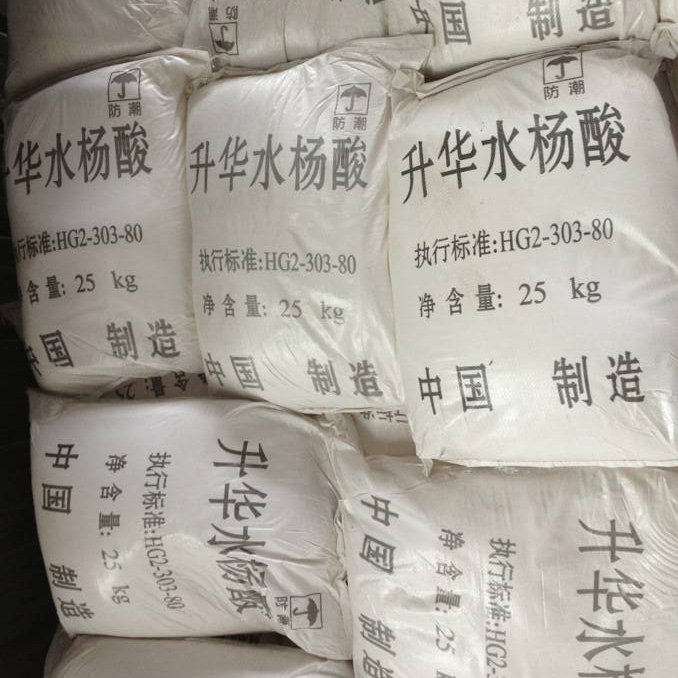 防潮
中国 制造
制造
防潮
升华水杨酸
执行标准:HG2-303-80
净含量: 25 kg
中国 制造
防潮
升华水杨酸
执行标准:HG2-303-80
净含量: 25 kg
中国 制造
防潮
升华水杨酸
执行标准:HG2-303-80
净含量: 25 kg
中国 制造
防潮
升华水杨酸
执行标准:HG2-303-80
净含量: 25 kg
中国 制造
升华水杨
执行标准:HG2-303
净含量: 25
中国 制造